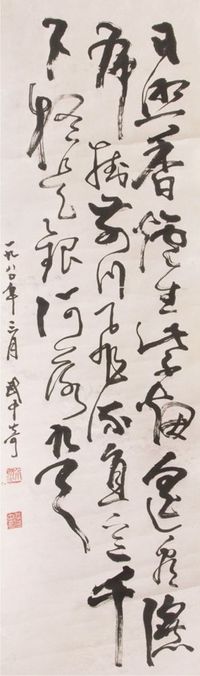 日照香爐生紫烟遥看瀑
布掛前川飛流直下三千
尺疑是銀河落九天
一九八〇年三月 武中奇